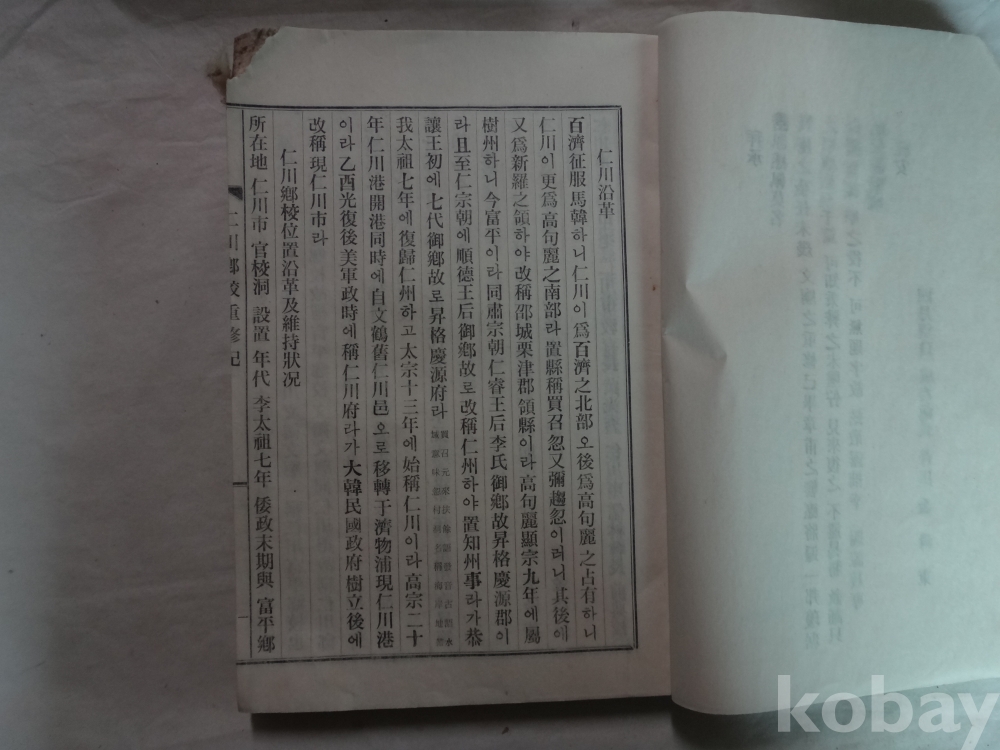 仁川沿革
百濟征服馬韓하니仁川이爲百濟之北部오後爲高句麗之占有하니
仁川이更爲高句麗之南部라置縣稱買召忽又彌趨忽이러니其後에
又爲新羅之領하야改稱邵城栗津郡領縣이라高句麗顯宗九年에屬
樹州하니今富平이라同肅宗朝仁睿王后李氏御鄕故昇格慶源郡이
라且至仁宗朝에順德王后御鄕故로改稱仁州하야置知州事라가恭
讓王初에七代御鄕故로昇格慶源府라
我太祖七年에復歸仁州하고太宗十三年에始稱仁川이라高宗二十
年仁川港開港同時에自文鶴舊仁川邑오로移轉于濟物浦現仁川港
이라乙酉光復後美軍政時에稱仁川府라가大韓民國政府樹立後에
改稱現仁川市라
仁川鄕校位置沿革及維持狀况
所在地 仁川市 官校洞 設置 年代 李太祖七年 倭政末期與 富平鄕
仁川鄕校重修記
kobay